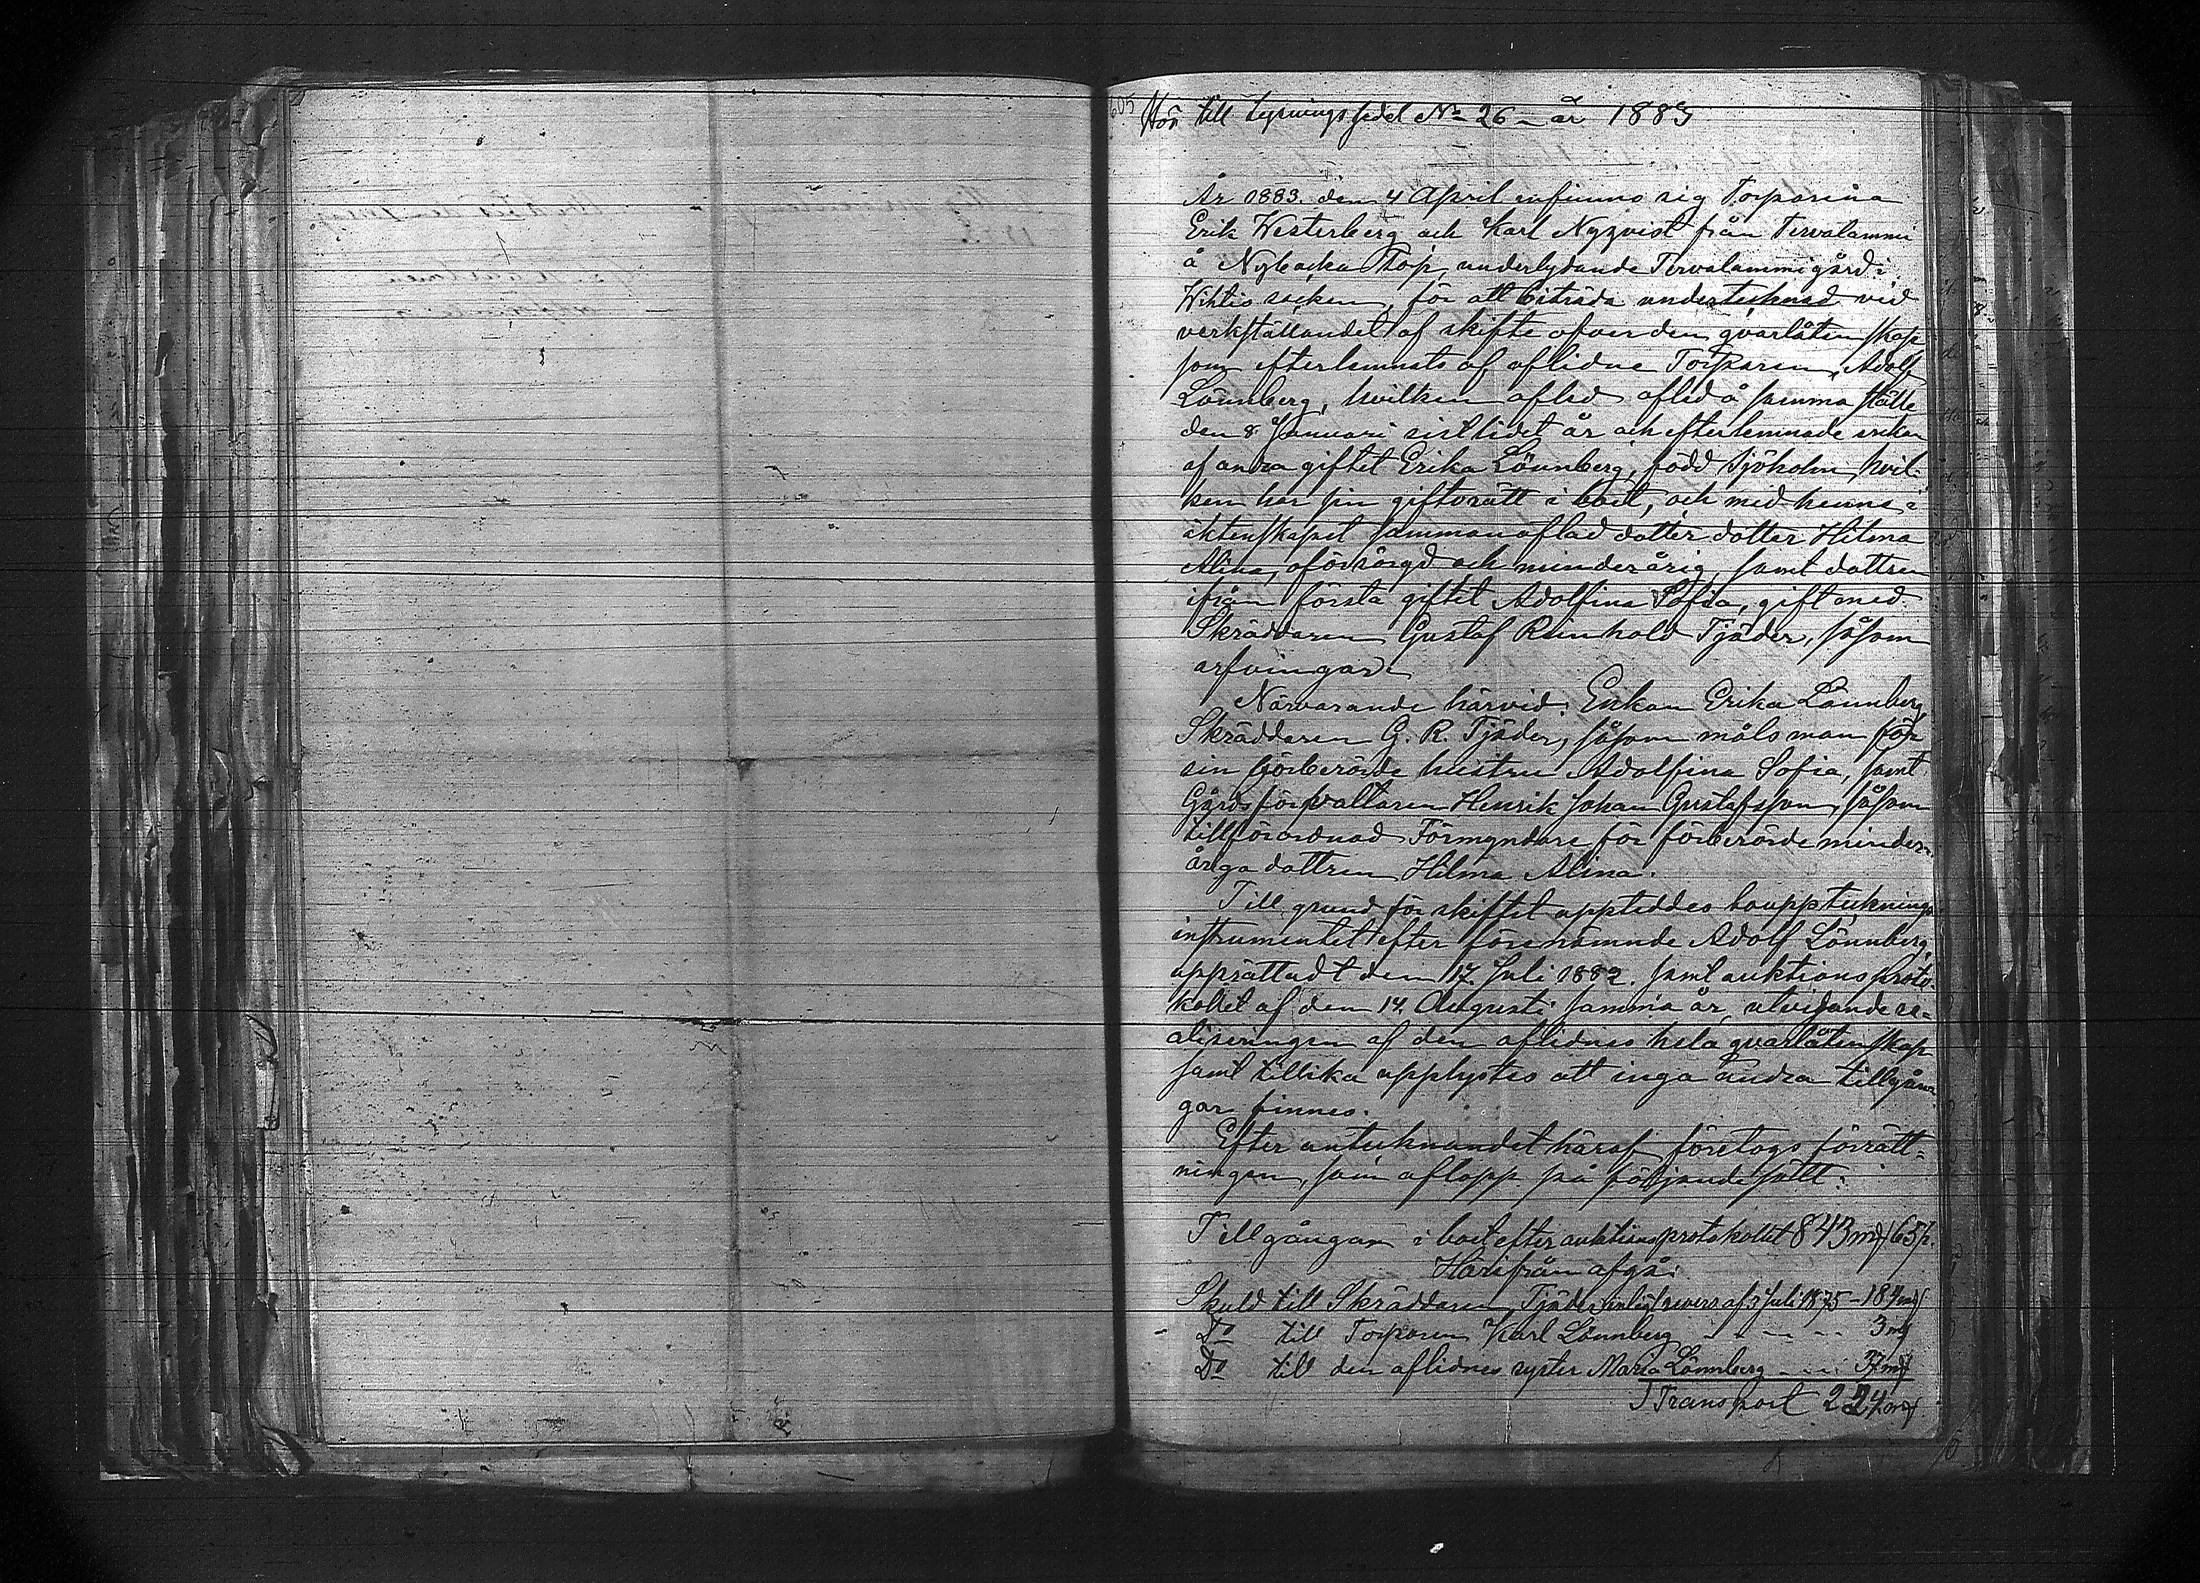 605
Hör till Lysningssedel No 26 år 1883
År 1883. den 4 April infunno sig Torparena
Erik Westerberg och Karl Nyqvist från Tervalammi
å Nybacka Torp, underlydande Tervalammi gård i
Wihtis socken, för att biträda undertecknad vid
verkställandet af skifte öfver den qvarlåtenskap
som efterlemnats af aflidne Torparen, Adolf
Lönnberg, hvilken afled afled å samma ställe
den 8 Januari sistlidet år och efterlemnade enkan
af andra giftet Erika Lönnberg, född Sjöholm, hvil-
ken har sin giftorätt i boet, och med henne i
äktenskapet sammanaflad dotter dotter Hilma
Alina, oförsörgd och minderårig, samt dottren
ifrån första giftet Adolfina Sofia, gift med
Skräddaren Gustaf Reinhold Tjäder, såsom
arfvingar.
Närvarande härvid: Enkan Erika Lönnberg,
Skräddaren G. R. Tjäder, såsom målsman för
sin förberörde hustru Adolfina Sofia, samt
Gårdsförvaltaren Henrik Johan Gustafsson, såsom
tillförordnad Förmyndare för förberörde minder-
åriga dottren Hilma Alina.
Till grund för skiftet uppteddes bouppteknings
instrumentet efter förenämnde Adolf Lönnberg,
upprättadt den 17. Juli 1882. samt auktions proto-
kollet af den 14. Augusti samma år, utvisande re-
aliseringen af den aflidnes hela qvarlåtenskap
samt tillika upplystes att inga andra tillgån-
gar finnes.
Efter anteknandet häraf företogs förrätt-
ningen, som aflopp på följande sätt:
Tillgångar i boet efter auktionsprotokollet 843 mf 65 p.
Härifrån afgå:
Skuld till Skräddaren Tjäder enligt revers af 3 Juli 1875 - 184 mf
Do till Torparen Karl Lönnberg - - - - 3 mf
Do till den aflidnes syster Maria Lönnberg - - - 37 mf
Transport 224 mf